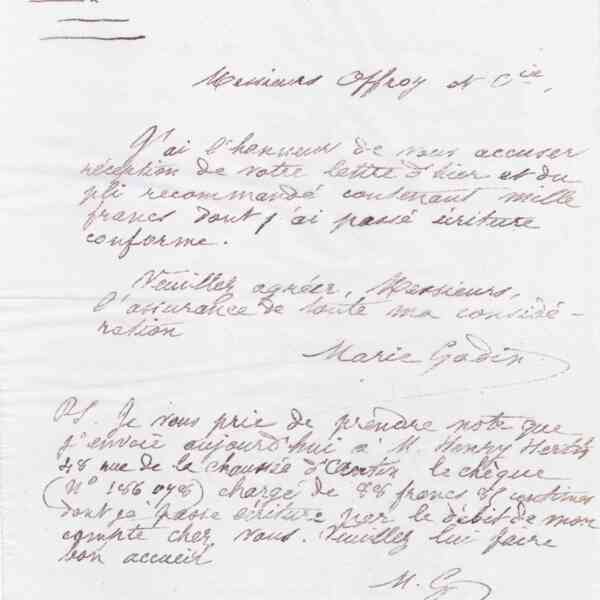 Messieurs Offroy et Cie,
J'ai l'honneur de vous accuser
réception de votre lettre d'hier et du
pli recommandé contenant mille
francs dont j'ai passé écriture
conforme.
Veuillez agréer, Messieurs,
l'assurance de toute ma considé-
ration
Marie Godin
PS. Je vous prie de prendre note que
j'envoie aujourd'hui à M. Henry
48 rue de la chaussée d'Antin le chèque
(N° 186 078) chargé de 88 francs centimes
dont j'ai passé écriture par le débit de mon
compte chez vous. Veuillez lui faire
bon accueil
M. G